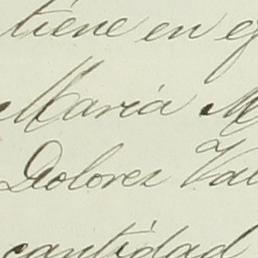 tiene en
Maria
Dolores
cantidad